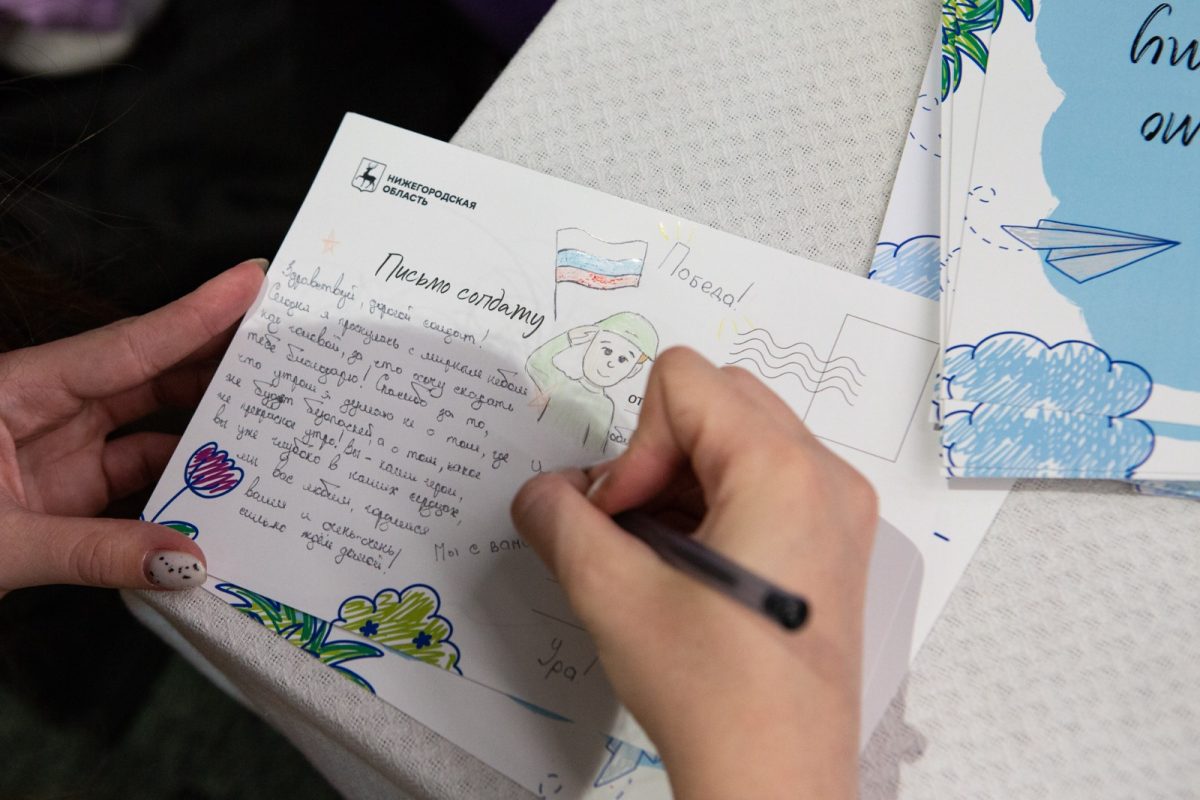 НИЖЕГОРОДСКАЯ
ОБЛАСТЬ
Победа!
Письмо солдату
Здравствуй, дорогой солдат!
Сегодня я проснулась с мирным небом
над головой, за что хочу сказать
тебе благодарю! Спасибо за то,
что утром я думаю не о том, где
же будет безопасней, а о том, какое
же прекрасное утро! Вы - наши герои,
вы уже глубоко в наших сердцах,
мы вас любим, гордимся
вами и очень-очень/
сильно ждём домой!
Мы с вами
Ура!
от